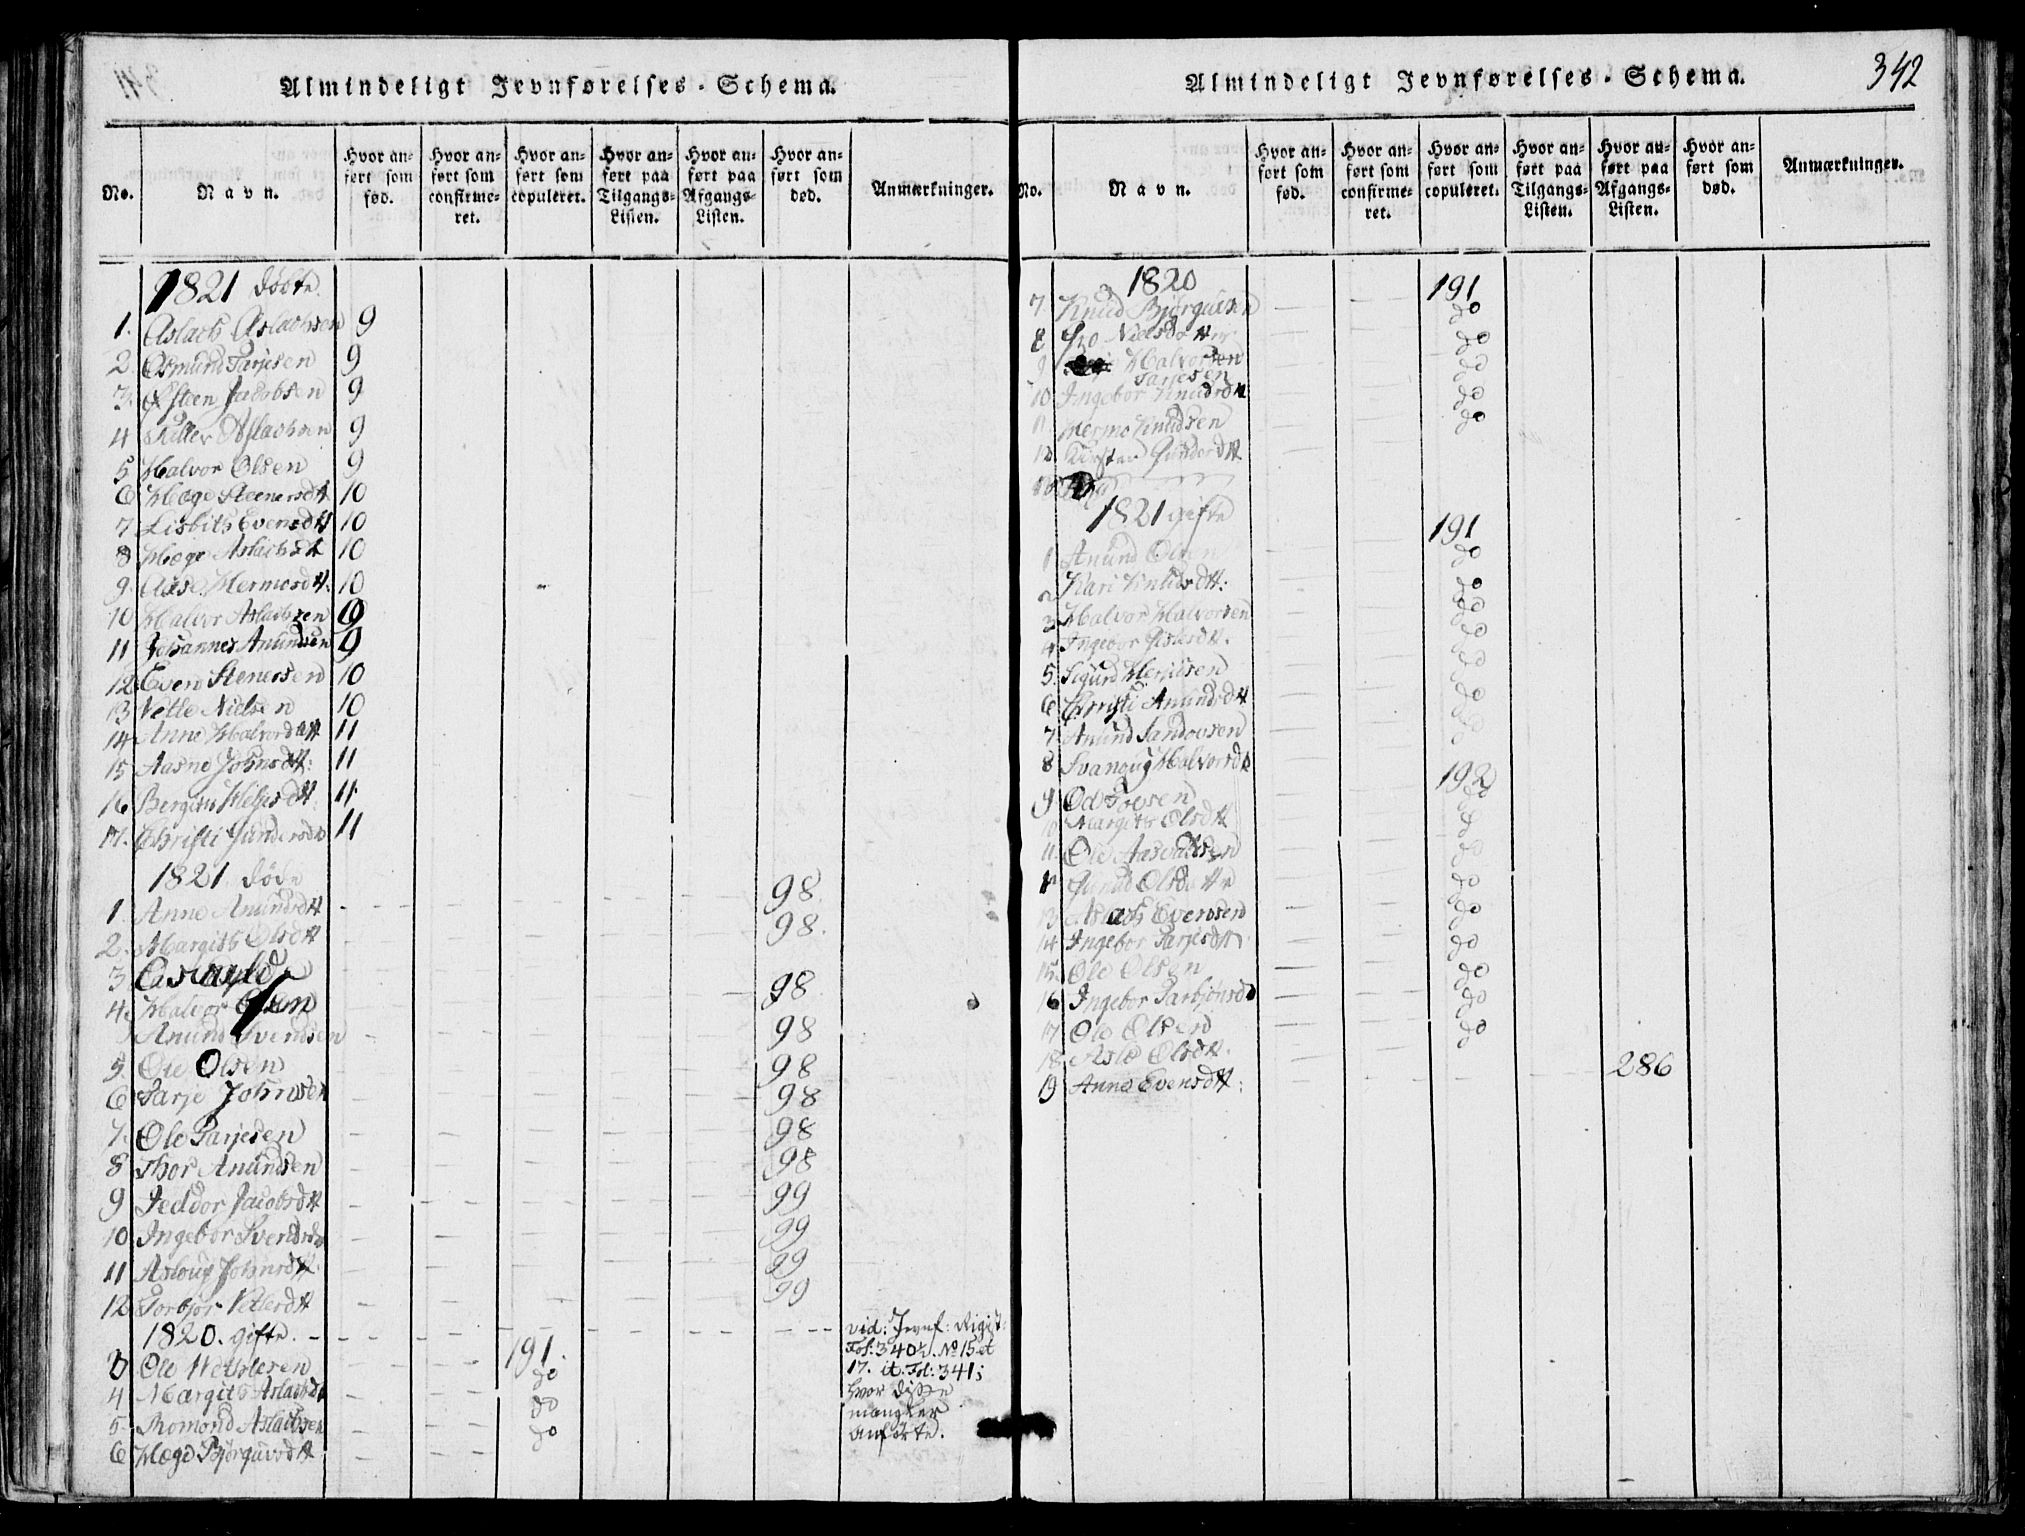 Almindeligt Jevnførelses-Schema.
No.
Navn.
Hvor an-
ført som
fød.
Hvor an-
ført som
confirme-
ret.
Hvor an-
ført som
copuleret.
Hvor an-
ført paa
Tilgangs-
Listen.
Hvor an-
ført paa
Afgangs-
Listen.
Hvor an-
ført som
død.
Anmærkninger.
1821 døbte
1. Aslach Aslachsen 9
2 Osmund Tarjesen 9
3. Østeen Jacobsen 9
4 Aslachsen 9
5 Halvor Olsen 9
6 Hæge Steenersdtt 10
7 Lisbith Evensdtt 10
8 Hæge Aslachsdtt 10
9. Aase Hermosdtt: 10
10 Halvor Aslachsen 9
11 Johannes Anundsen 9
12 Even Stenersen 10
13 Vetle Nielsen 10
14 Anne Halvorsdtt 11
15 Aasne Johnsdtt: 11
16 Bergith Helgesdtt 11
17. Christi Gundersdtt 11
1821. døde
1. Anne Anundsdtt 98
2. Margith Olsdtt 98.
3
4. Halvor Olsen 98
Anund Svendsen 98
5. Ole Olsen 98
6 Tarje Johnsen 98
7. Ole Tarjesen 98
8 Thor Anundsen 98
9 Jeddor Jacobsdtt 99
10 Ingebor Svendsdtt 99
11 Asloug Johnsdtt. 99
12 Torbjør Vetlesdtt 99
1820. gifte.
vid: Jevnf: Regist:
Fol: 340½. No 15 et
17. it. Fol: 341;
hvor disse
mangler
anførte.
3 Ole 191.
4 Margith Aslachsdtt do
5 Romond Aslachsen do
6 Hæge Bjørguvsdtt do
342
Almindeligt Jevnførelses-Schema.
No.
Navn.
Hvor an-
ført som
fød.
Hvor an-
ført som
confirme-
ret.
Hvor an-
ført som
copuleret.
Hvor an-
ført paa
Tilgangs-
Listen.
Hvor an-
ført paa
Afgangs-
Listen.
Hvor an-
ført som
død.
Anmærkninger.
1820
7 Knud Bjørguvsen 191
8 Gro Nielsdatter do
9 Halvorsen do
Tarjesen
10 Ingebor Knudsdtt do
11 Hermo Knudsen do
12 Kirsten Gundersdtt do
1821 gifte
1 Anund Olsen 191
2 Kari Knudsdtt: do
3 Halvor Halvorsen do
4 Ingebor Gislesdtt. do
5. Sigurd do
6 Christi Anundsdtt do
7 Anund Sandovsen do
8 Svanoug Halvorsdtt do
9 Od 192
10 Margith Olsdtt do
11 Ole Aasvaldsen do
Gunild Olsdatter do
13 Aslach Evensen do
14 Ingebor Tarjesdtt do
15 Ole Olsen do
16 Ingebor Tarbjønsd do
17 Ole Olsen do
18 Aslo Olsdtt. do
19 Anne Evensdtt: 286